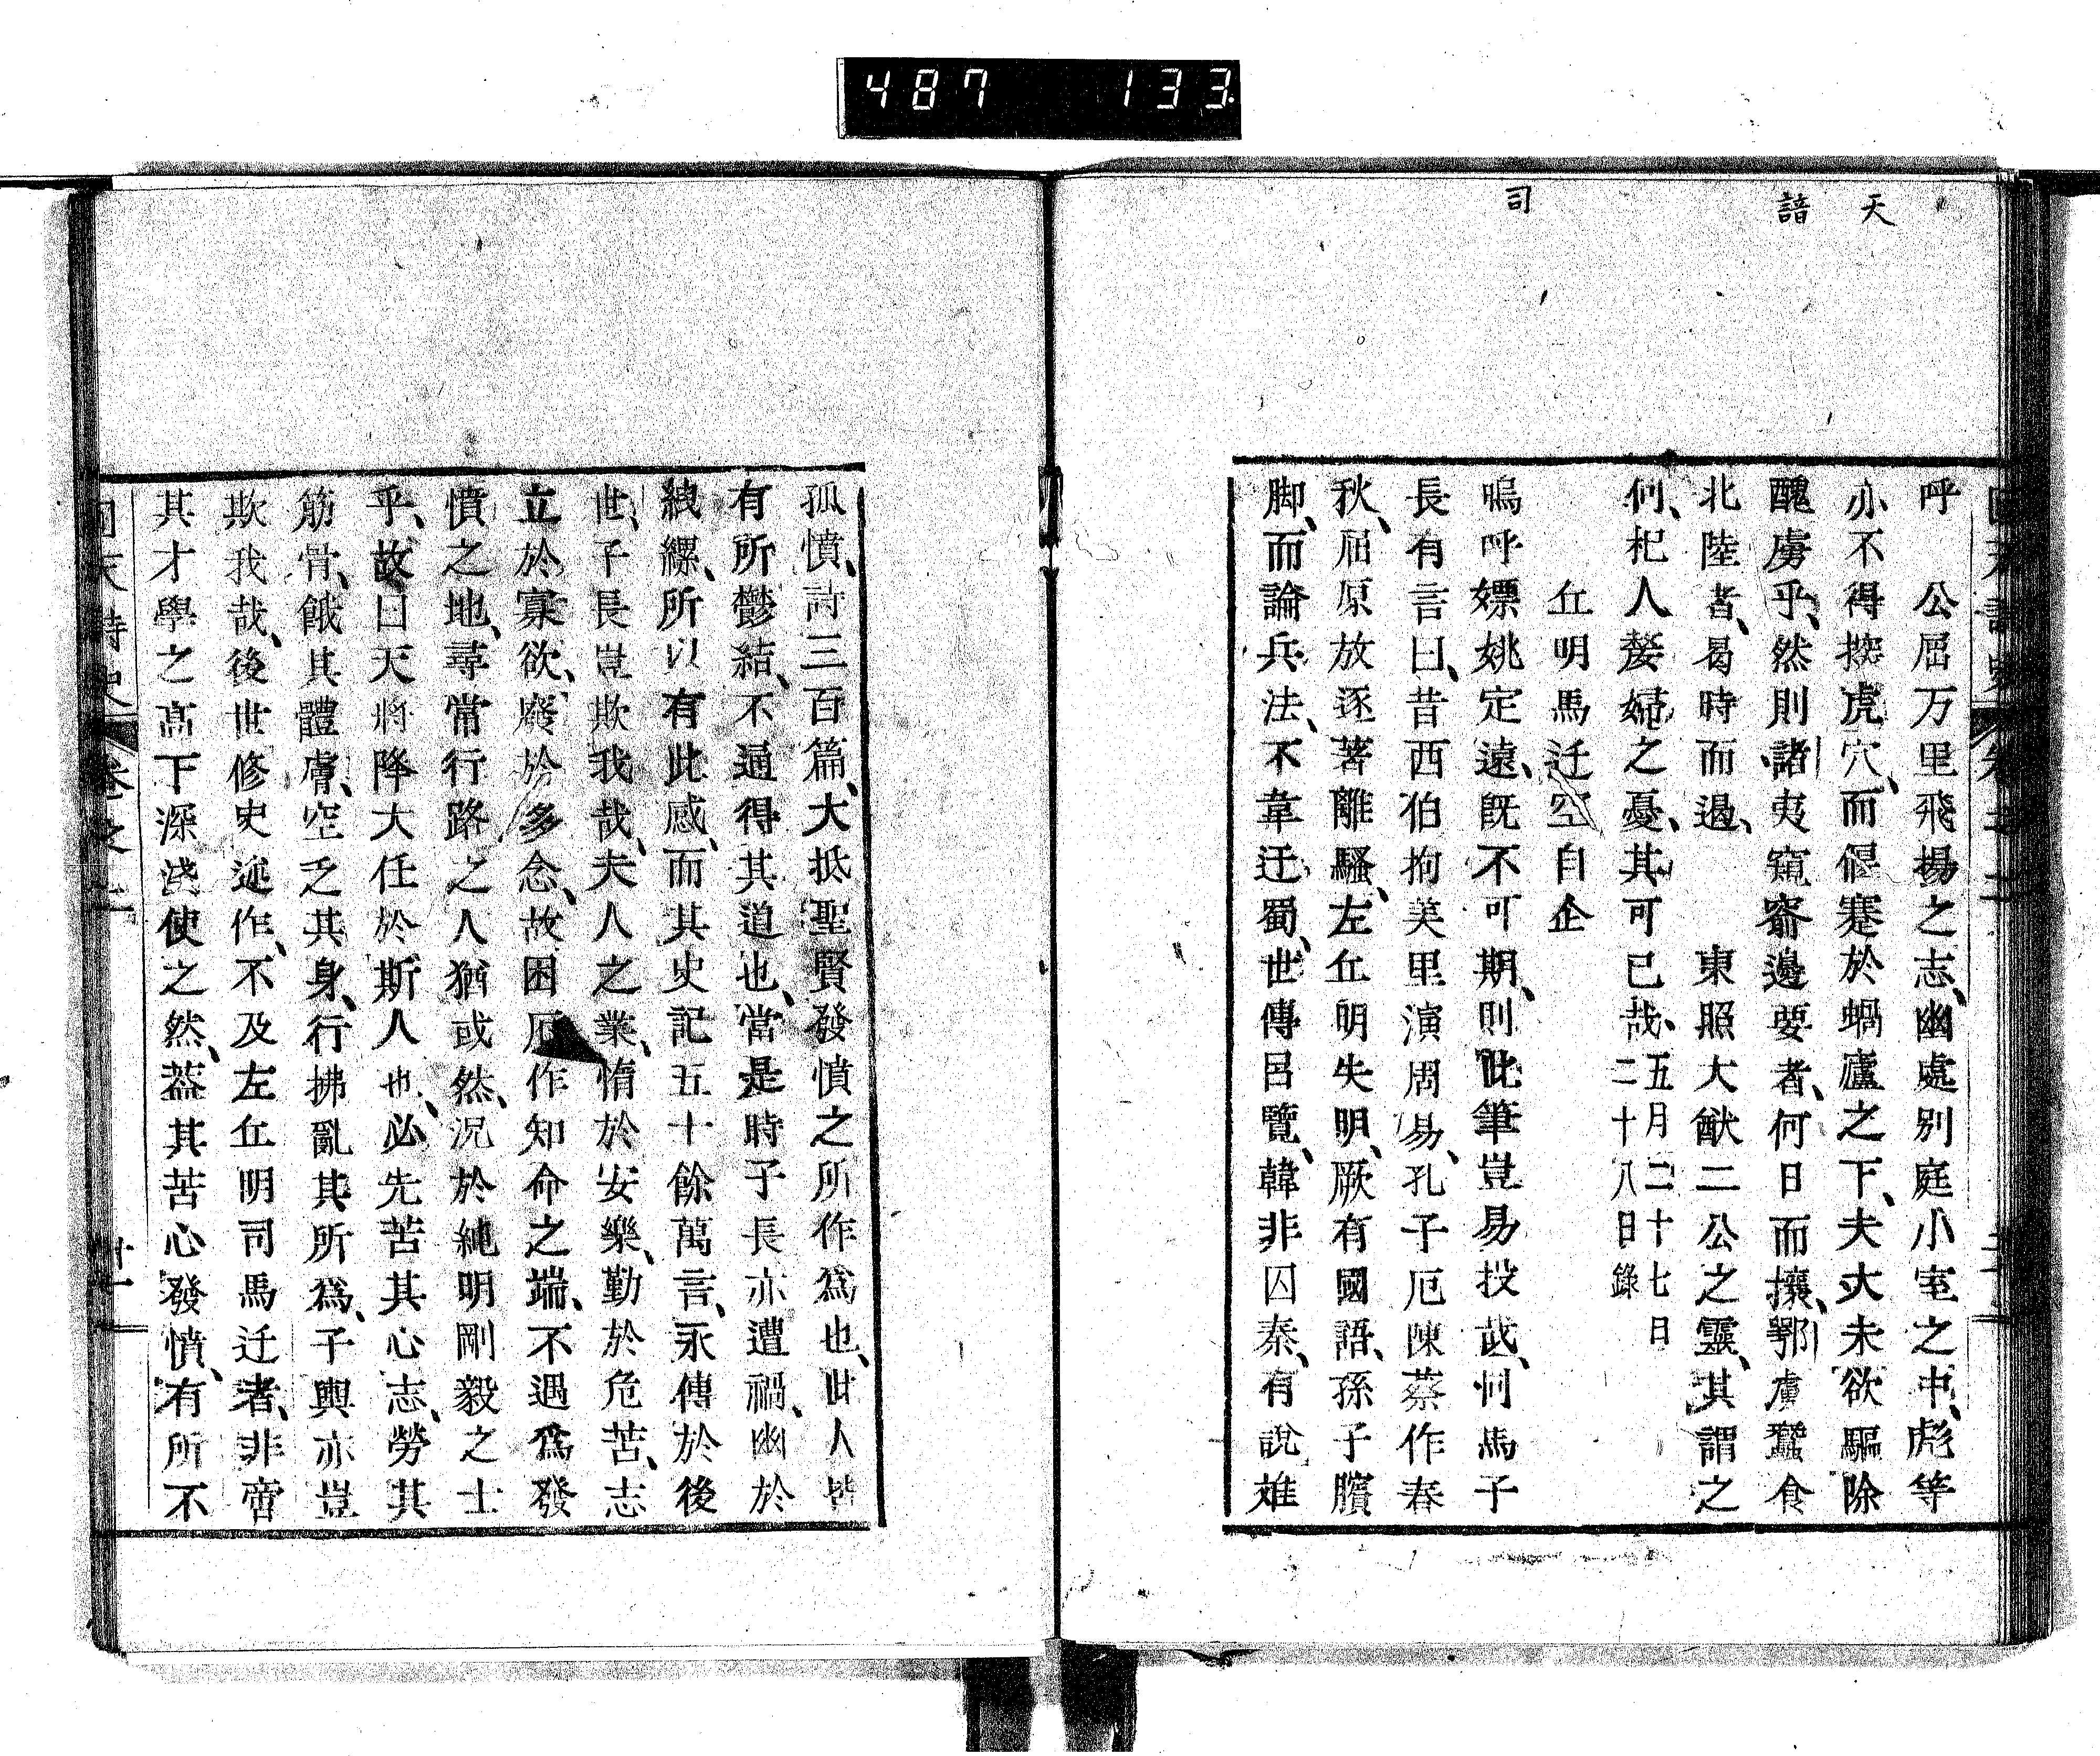 487 133
天
諳
司
呼 公屈万里飛揚之志、幽處別庭小室之中、彪等
亦不得撩虎穴、而偃蹇於蝸廬之下、夫犬未欲驅除
醜虜乎、然則諸夷窺竊邊要者、何日而攘、鄂虜蠶食
北陸者、曷時而遏、 東照大猷二公之靈、其謂之
何、杞人嫠婦之憂、其可已哉、五月二十七日
二十八日錄
丘明馬迁空自企
嗚呼嫖姚定遠、既不可期、則此筆豈易投哉、何馬子
長有言曰、昔西伯拘羑里演周易、孔子厄陳蔡作春
秋、屈原放逐著離騷、左丘明失明、厥有國語、孫子臏
脚、而論兵法、不韋迁蜀、世傳呂覽、韓非囚秦、有說難
孤憤、詩三百篇、大抵聖賢發憤之所作爲也、此人皆
有所鬱結、不通得其道也、當是時子長亦遭禍、幽於
縲、所以有此感、而其史記五十餘萬言、永傳於後
世、子長豈欺我哉、夫人之業、惰於安樂、勤於危苦、志
立於寡欲、廢於多念、故困厄作知命之端、不遇爲發
憤之地、尋常行路之人猶或然、況於純明剛毅之士
乎、故曰天將降大任於斯人也、必先苦其心志、勞其
筋骨、餓其體膚、空乏其身、行拂亂其所爲、子輿亦豈
欺我哉、後世修史述作、不及左丘明司馬迁者、非啻
其才學之高下深淺使之然、蓋其苦心發憤、有所不
回天詩史 卷之上 廿一